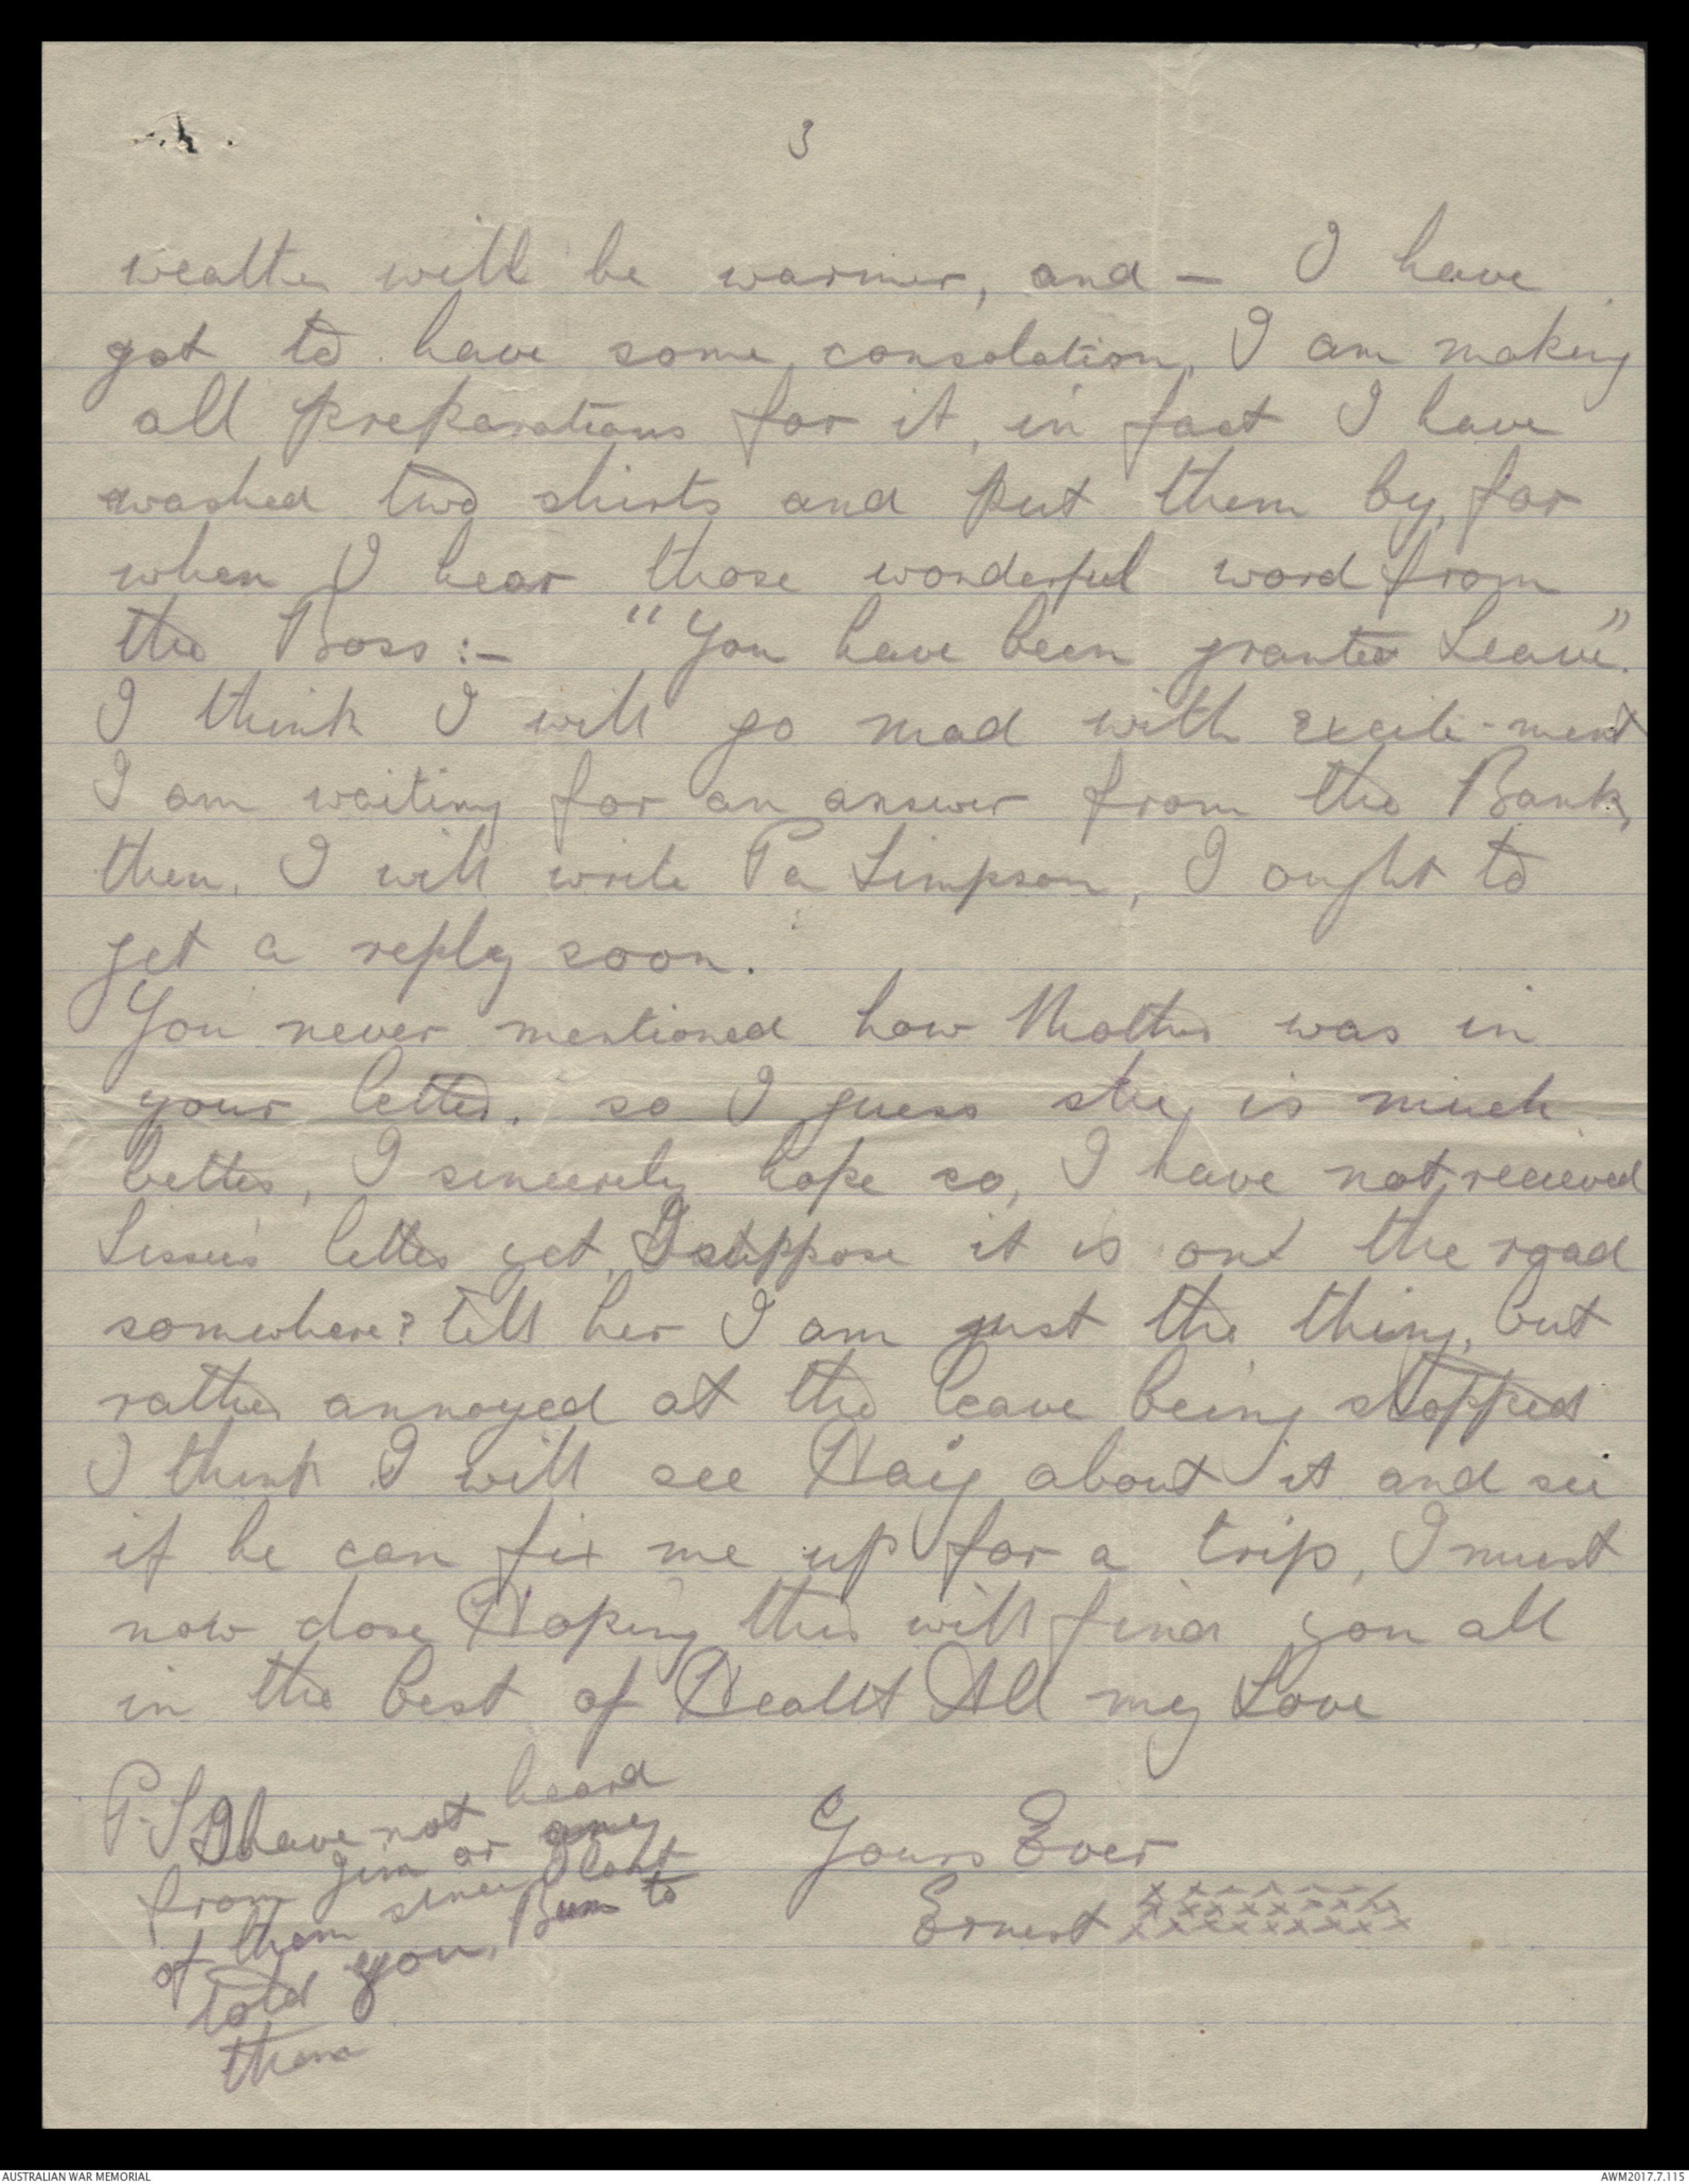 3
weather will be warmer, and - I have
got to have some consolation, I am making
all preparations for it, in fact I have
washed two shirts and put them by, for
when I hear those wonderful word from
the Boss:- "You have been granted Leave".
I think I will go mad with excite-ment
I am waiting for an answer from the Bank,
then, I will write Pa Simpson, I ought to
get a reply soon.
You never mentioned how Mother was in
your letter, so I guess she, is much
better, I sincerely hope so, I have not recieved
Lissie's letter yet, I suppose it is on the road
somewhere? tell her I am just the thing, but
rather annoyed at the leave being stopped
I think I will see Haig about it and see
if he can fix me up for a trip, I must
now close Hoping this will find you all
in the best of Health All my Love
Yours Ever
Ernest xxxxxxxx
xxxxxxxxx
xxxxxxxxx
P.S I have not heard
from Jim or any
of them since I last
told you, Bum to
them
AUSTRALIAN WAR MEMORIAL
AWM2017.7.115